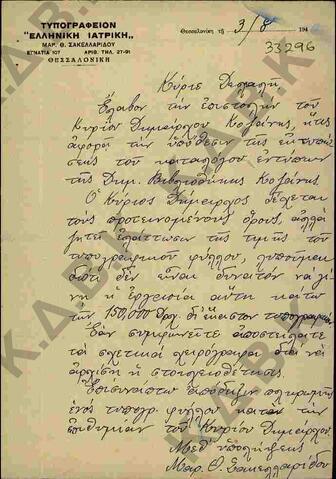 ΤΥΠΟΓΡΑΦΕΙΟΝ
"ΕΛΛΗΝΙΚΗ ΙΑΤΡΙΚΗ"
ΜΑΡ. Θ. ΣΑΚΕΛΛΑΡΙΔΟΥ
ΕΓΝΑΤΙΑ 107 ΑΡΙΘ. ΤΗΛ. 27-91
ΘΕΣΣΑΛΟΝΙΚΗ
Θεσσαλονίκη τῇ 3/8 194
33296
Κύριε Δελιαλῆ
Ἔλαβον τὴν ἐπιστολὴν τοῦ
Κυρίου Δημάρχου Κοζάνης, ἥτις
ἀφορᾶ τὴν ὑπόθεσιν τῆς ἐκτυπώ
σεως τοῦ καταλόγου ἐντύπων
τῆς Δημ. Βιβλιοθήκης Κοζάνης
Ὁ Κύριος Δήμαρχος δέχεται
τοὺς προτεινομένους ὅρους, ἀλλὰ
ζητεῖ ἐλάττωσιν τῆς τιμῆς τοῦ
τυπογραφικοῦ φύλλου, λυποῦμαι
διότι δὲν εἶναι δυνατὸν νὰ γί
νῃ ἡ ἐργασία αὕτη κάτω
τῶν 150,000 δρχ. δι' ἕκαστον τυπογραφικὸν
Ἐὰν συμφωνεῖτε ἀποστείλατε
τὰ σχετικὰ χειρόγραφα διὰ νὰ
ἀρχίσῃ ἡ στοιχειοθέτησις.
Ἐπισυνάπτω ἀπόδειξιν πληρωμῆς
ἑνὸς τυπογρ. φύλλου κατὰ τὴν
ἐπιθυμίαν τοῦ Κυρίου Δημάρχου
Μεθ' ὑπολήψεως
Μαρ. Θ. Σακελλαρίδου
Κ.Δ.Β.Κ